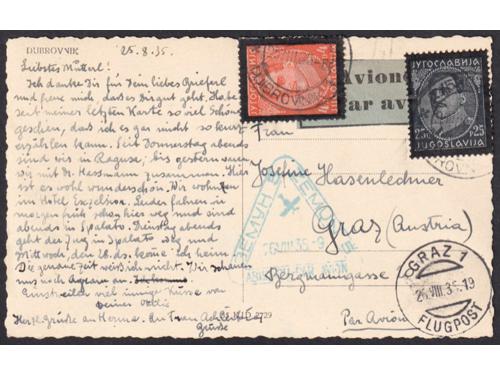 DUBROVNIK
25.8.35.
Liebstes Mutterl!
Ich danke Dir für Dein liebes Brieferl
und freue mich, dass es Dir gut geht. Habe
seit meiner letzten Karte so viel Schönes
gesehen, dass ich es gar nicht so kurz
erzählen kann. Seit Donnerstag abend
sind wir in Raguse, bis gestern waren
wir mit Dr. Hessmann zusammen. Hier
ist es wohl wunderschön. Wir wohnen
im Hotel Excelsior. Leider fahren wir
morgen früh schon hier weg und sind
abends in Spalato. Dienstag abends
geht der Zug in Spalato weg und
Mittwoch, den 28. ds. komme ich heim
Die genaue Zeit weiß ich nicht. Wir schauen
uns noch an.
Einstweilen viel innige Küsse von
Deiner
Herzl. Grüße an Herma. An Frau
Grüße
2729
Avionom
Par avion
ЈУГОСЛАВИЈА
JUGOSLAVIJA
Frau
Josefine Hasenlechner
Graz (Austria)
Bergmanngasse
Par Avion
26 VIII 35-9
PAR AVION
GRAZ 1
26.VIII.35.-19
FLUGPOST